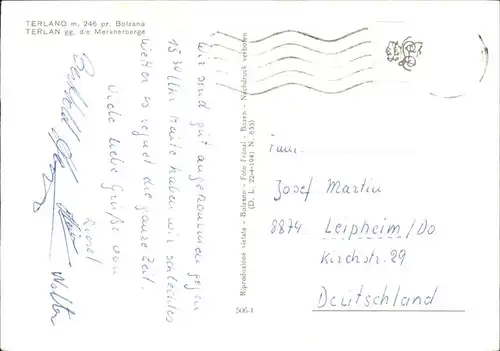 TERLANO m. 246 pr. Bolzano
TERLAN gg. die Meranerberge
Wir sind gut angekommen gegen
15 30 Uhr. Heute haben wir schlechtes
Wetter es regnet die ganze Zeit.
Viele liebe Grüße von
Liesel
Walter
Riproduzione vietata - Bolzano - Foto Frinzl - Bozen - Nachdruck verboten
(D. L. 22-4-1941 N. 633)
506-1
Fam.
Josef Martin
8874 Leipheim/Do
Kirchstr. 29
Deutschland